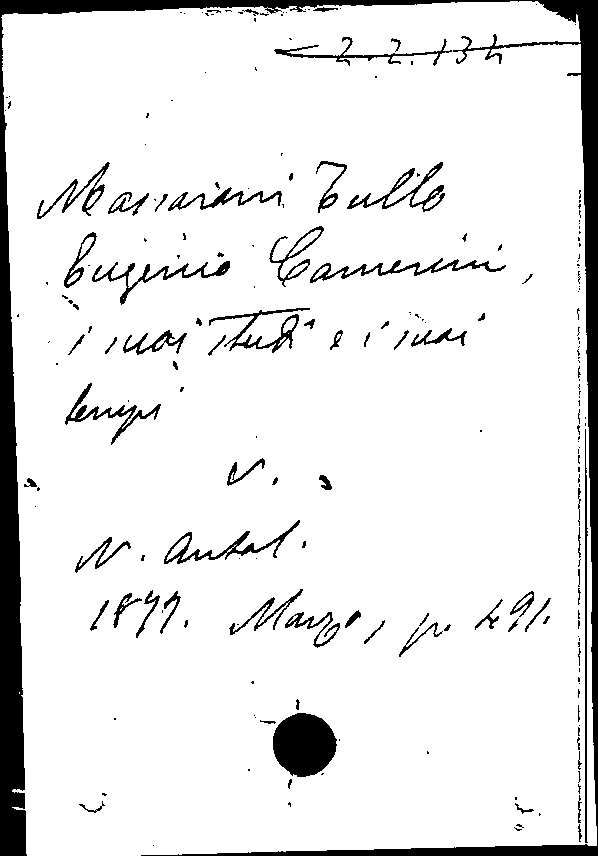 2.2.134
Massarani Tullo
Eugenio Camerini,
i suoi studi e i suoi
tempi
v.
N. Antol.
1877. Marzo, p. 491.